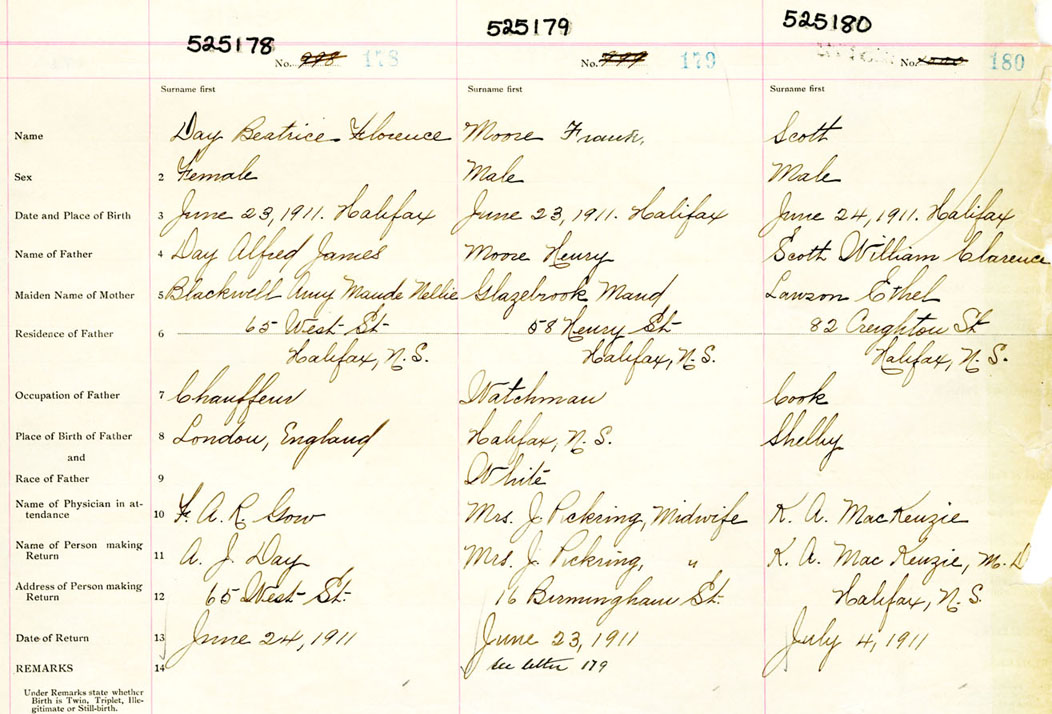 525178 525179 525180
No. 178 No. 179 No. 180
Surname first Surname first Surname first
Name Day Beatrice Florence Moore Frank, Scott
Sex 2 Female Male Male
Date and Place of Birth 3 June 23, 1911. Halifax June 23, 1911. Halifax June 24, 1911. Halifax
Name of Father 4 Day Alfred James Moore Henry Scott William Clarence
Maiden Name of Mother 5 Blackwell Amy Maude Nellie Glazebrook Maud Lawson Ethel
Residence of Father 6 65 West St. 58 Henry St. 82 Creighton St.
Halifax, N.S. Halifax, N.S. Halifax, N.S.
Occupation of Father 7 Chauffeur Watchman Cook
Place of Birth of Father 8 London, England Halifax, N.S. Shelby
and
Race of Father 9 White
Name of Physician in at-
tendance 10 F. A. R. Gow Mrs. J. Pickring, Midwife K. A. MacKenzie
Name of Person making
Return 11 A. J. Day Mrs. J. Pickring, " K. A. Mac Kenzie, M. D
Address of Person making
Return 12 65 West St. 16 Birmingham St. Halifax, N.S.
Date of Return 13 June 24, 1911 June 23, 1911 July 4, 1911
REMARKS 14 see letter 179
Under Remarks state whether
Birth is Twin, Triplet, Ille-
gitimate or Still-birth.